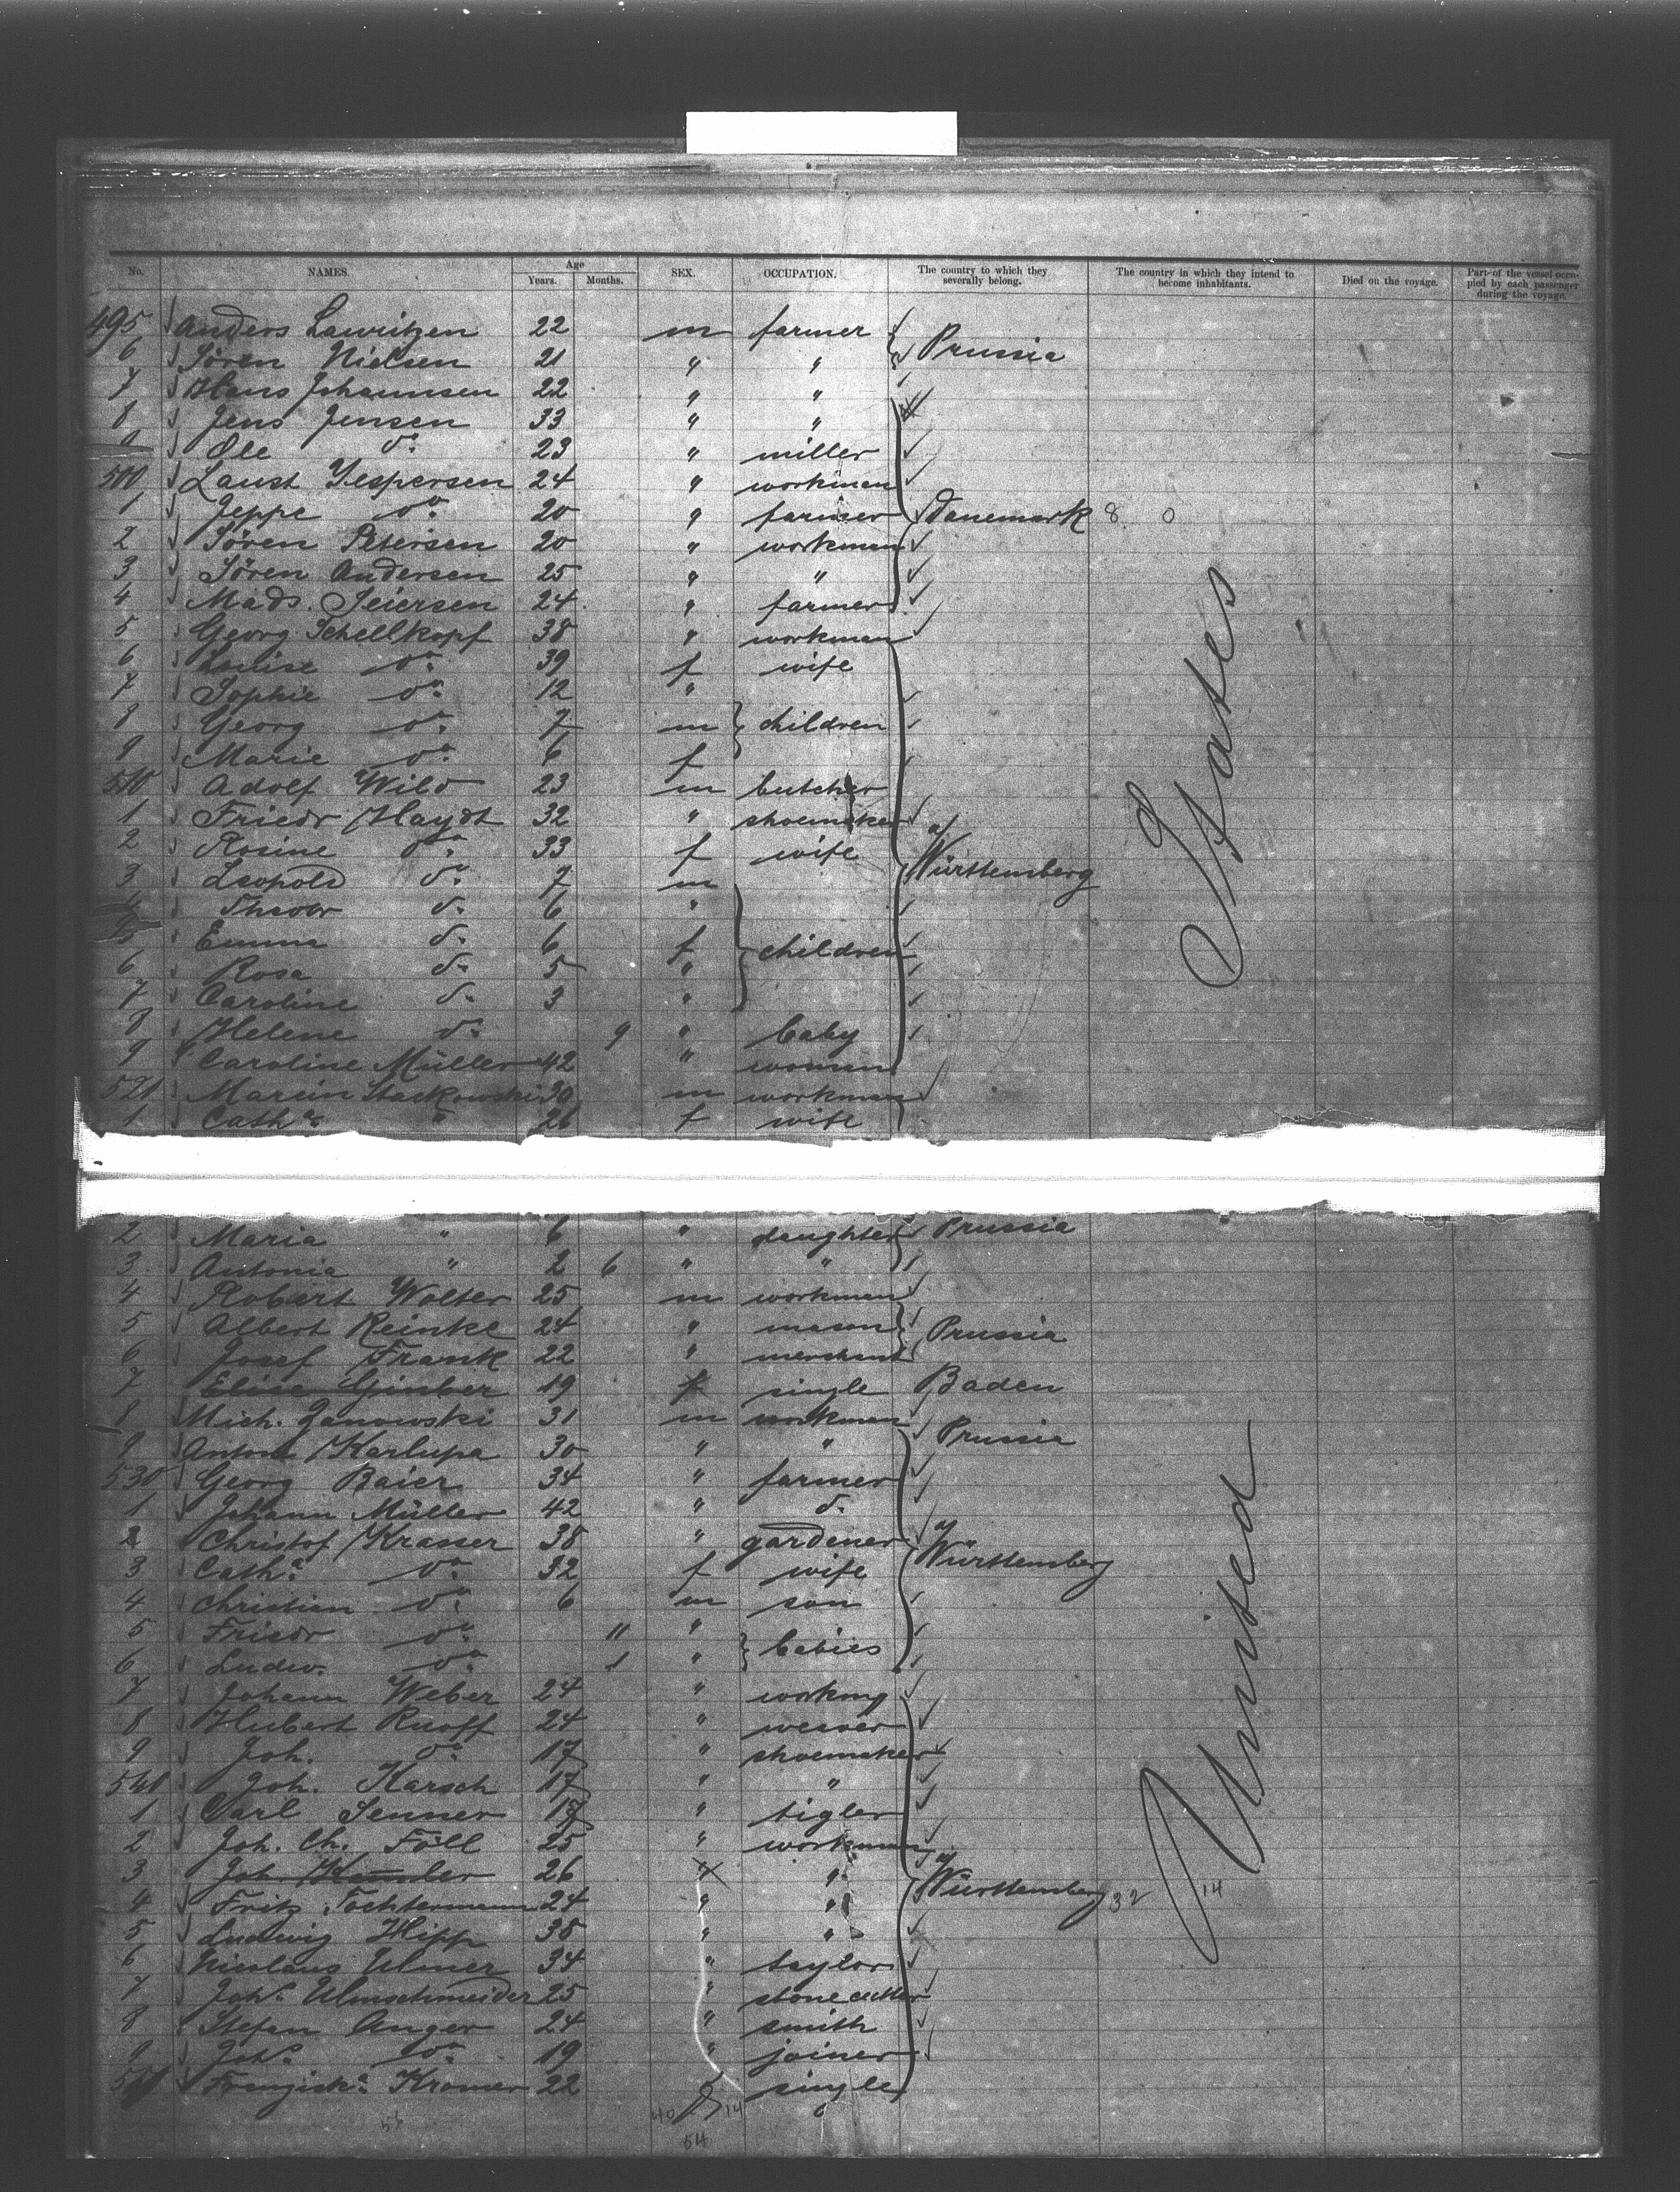 No. NAMES. Age Years. Months. SEX. OCCUPATION. The country to which they severally belong. The country in which they intend to become inhabitants. Died on the voyage. Part of the vessel occupied by each passenger during the voyage.
495 Anders Lawritzen 22 m farmer
6 Sören Nielsen 21 " " Prussia
7 Hans Johannsen 22 " "
8 Jens Jensen 33 " "
9 Ole do 23 " miller
500 Laust Jespersen 24 " workman
1 Jeppe do 20 " farmer Danemark 8 0
2 Sören Petersen 20 " workman
3 Sören Andersen 25 " "
4 Mads. Peiersen 24 " farmer
5 Georg Schellkopf 38 " workman
6 Louise do 39 f wife
7 Sophie do 12 "
8 Georg do 7 m children
9 Marie do 6 f
510 Adolf Wild 23 m butcher
1 Friedr Haydt 32 " shoemaker
2 Rosine do 33 f wife
3 Leopold do 7 m Württemberg
4 Theodr do 6 "
5 Emma do 6 f children
6 Rosa do 5 "
7 Caroline do 3 "
8 Helene do 9 " baby
9 Caroline Müller 42 " woman
520 Marcin Stackowski 30 m workman
1 Cath. " 26 f wife
2 Maria " 6 " daughter Prussia
3 Antonia " 2 6 " "
4 Robert Wolter 25 m workman
5 Albert Reinke 24 " mason Prussia
6 Josef Frank 22 " merchant
7 Elise Ginber 19 f single Baden
8 Mich. Janowski 31 m workman Prussia
9 Anton Karlupa 30 " "
530 Georg Baier 34 " farmer
1 Johann Müller 42 " do
2 Christof Krasser 38 " gardener
3 Cath. do 32 f wife Württemberg
4 Christian do 6 m son
5 Friedr do 11 " babies
6 Ludw. do 1 "
7 Johann Weber 24 " workmn
8 Hubert Ruoff 24 " weaver
9 Joh. do 17 " shoemaker
540 Joh. Karsch 17 " "
1 Carl Senner 17 " tigler
2 Joh. Ch. Föll 25 " workman
3 Joh. 26 " "
4 Fritz Tochtermann 24 " " Württemberg 32 14
5 Ludwig Hipp 38 " "
6 Nicolaus Ulmer 34 " taylor
7 Johs Ulmschneider 25 " stonecutter
8 Stefan Anger 24 " smith
9 Johs do 19 " joiner
550 Franziska Kromer 22 f single
40 14
54
United States